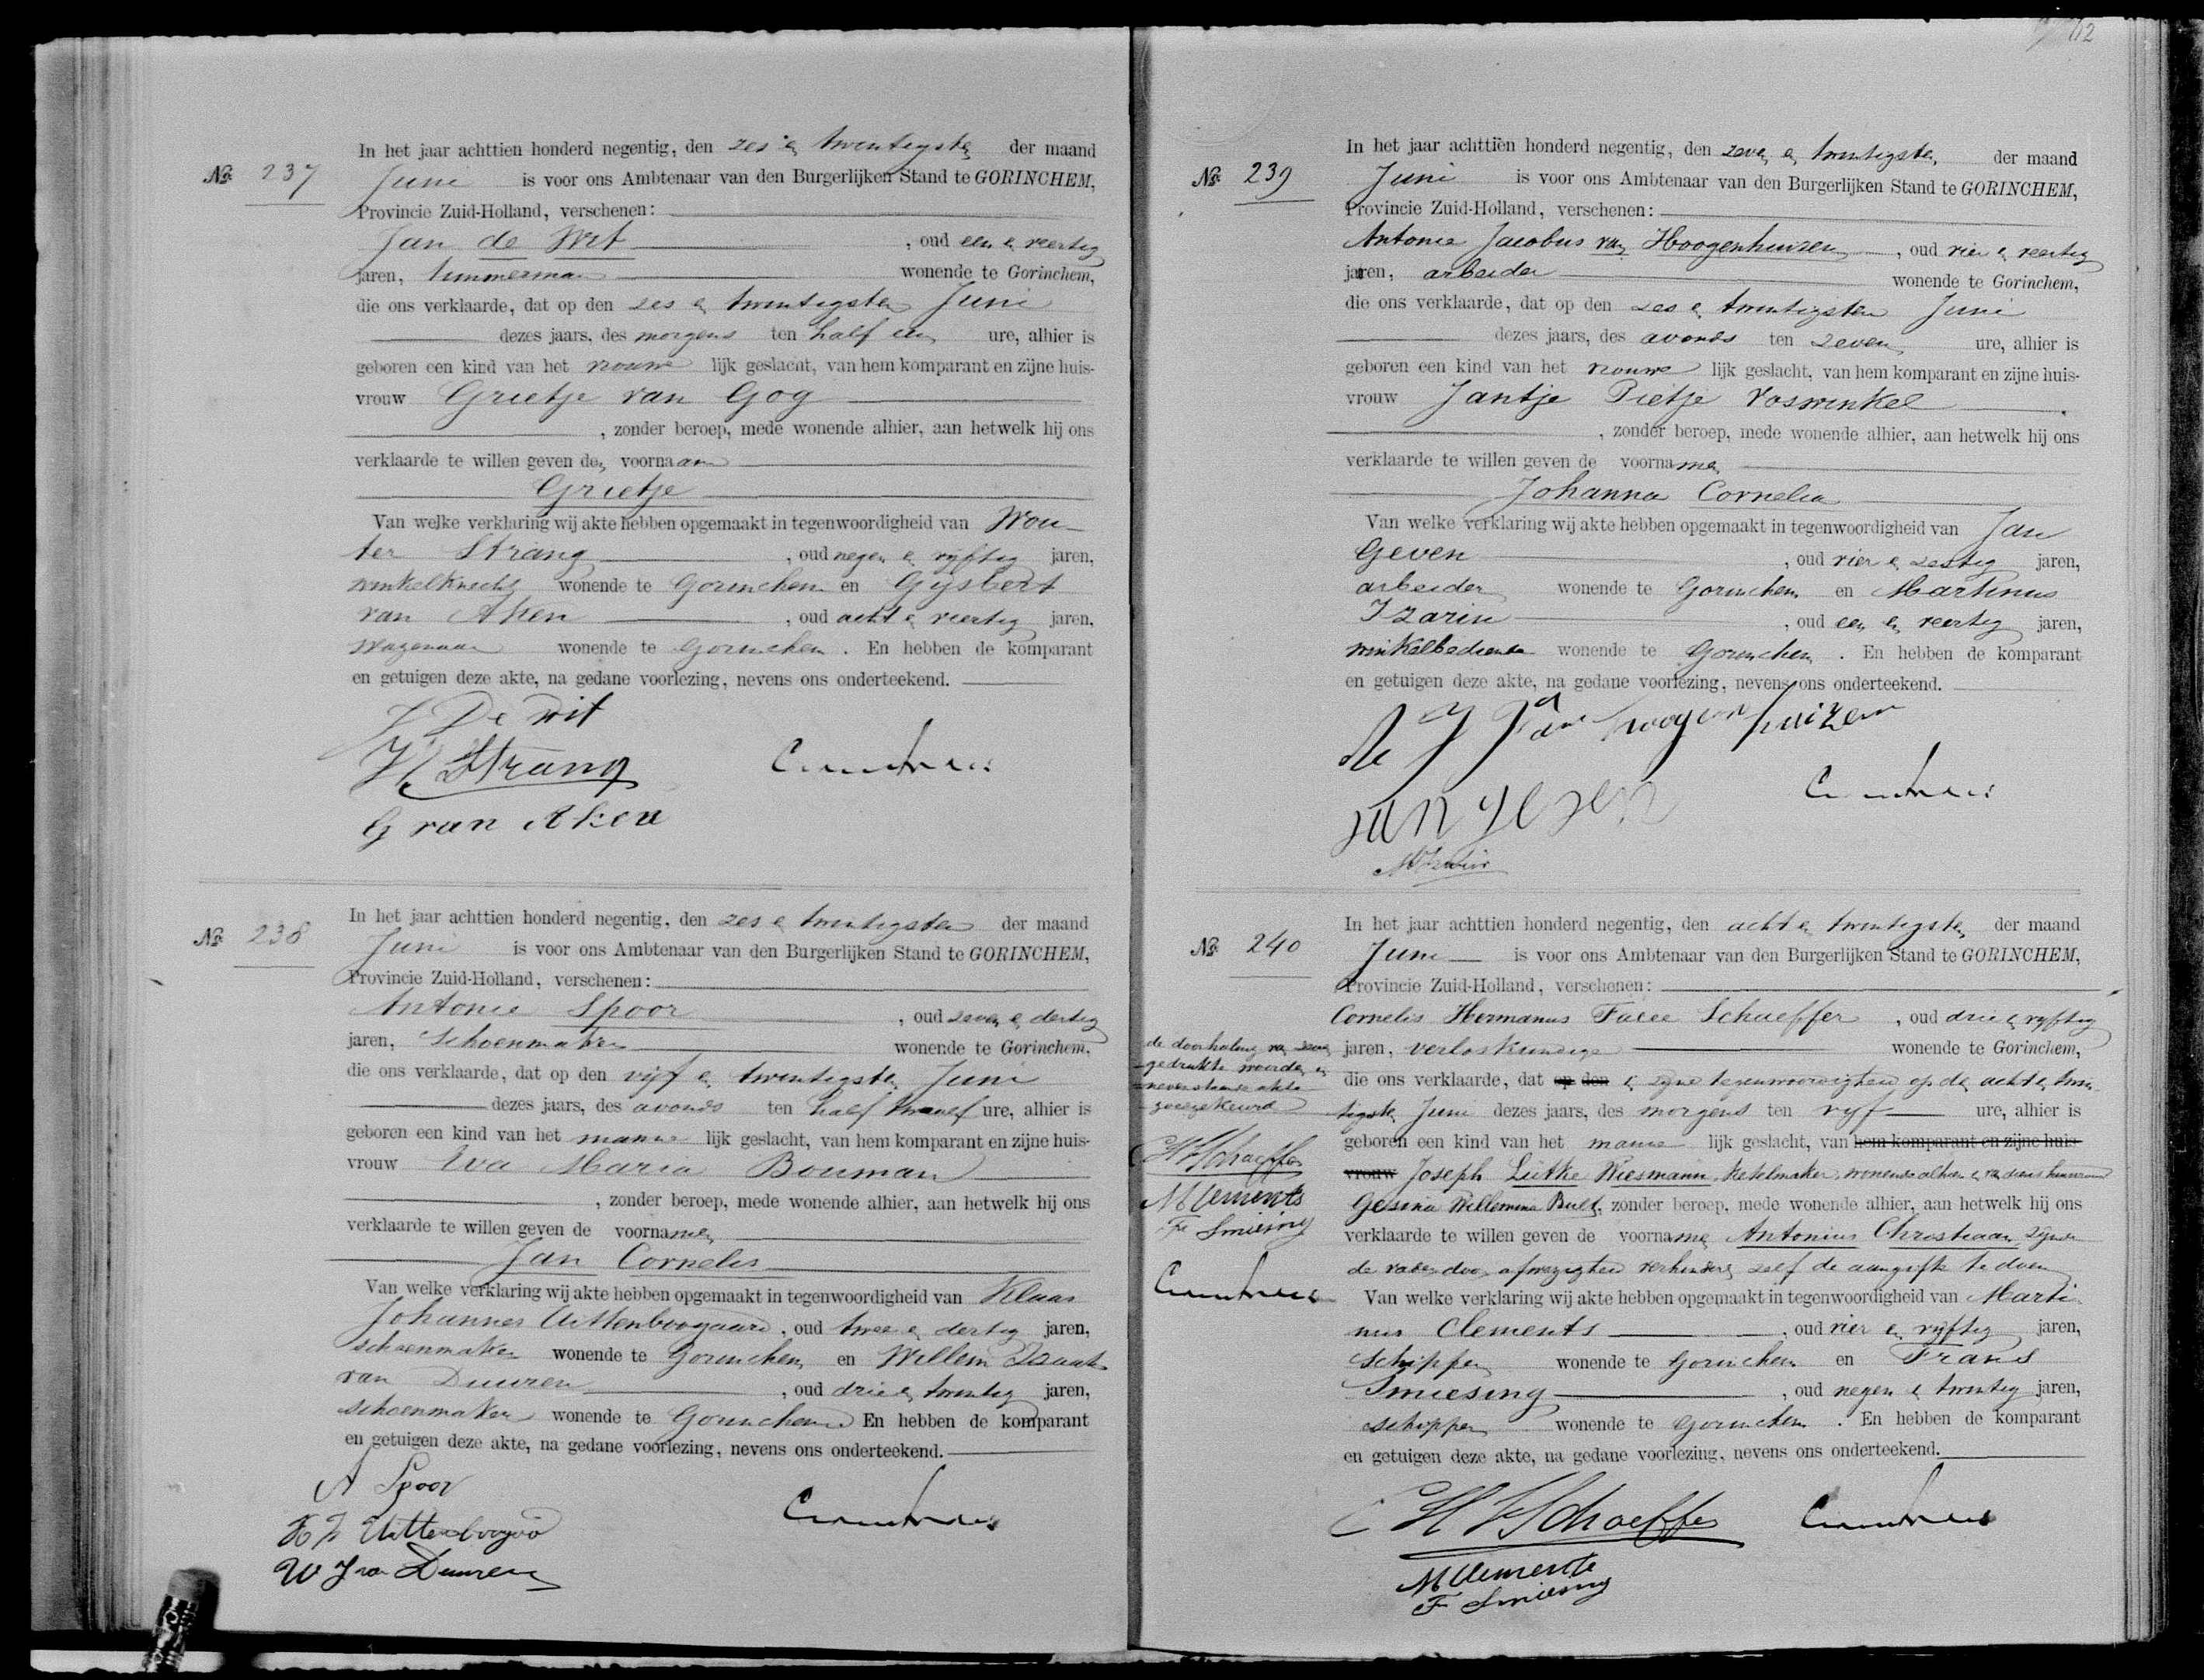 No. 237
In het jaar achttien honderd negentig, den zes en twentigsten der maand
Juni is voor ons Ambtenaar van den Burgerlijken Stand te GORINCHEM,
Provincie Zuid-Holland, verschenen:
Jan de Wit, oud een en veertig
jaren, timmerman wonende te Gorinchem,
die ons verklaarde, dat op den zes en twentigsten Juni
dezes jaars, des morgens ten half een ure, alhier is
geboren een kind van het vrouwe lijk geslacht, van hem komparant en zijne huis-
vrouw Grietje van Gog
, zonder beroep, mede wonende alhier, aan hetwelk hij ons
verklaarde te willen geven den voornaam
Grietje
Van welke verklaring wij akte hebben opgemaakt in tegenwoordigheid van Wou-
ter Strang, oud negen en vijftig jaren,
winkelknecht wonende te Gorinchem en Gijsbert
van Aken, oud acht en veertig jaren,
wagenaar wonende te Gorinchem. En hebben de komparant
en getuigen deze akte, na gedane voorlezing, nevens ons onderteekend.
J De Wit
W Strang
G van Aken
No. 238
In het jaar achttien honderd negentig, den zes en twentigsten der maand
Juni is voor ons Ambtenaar van den Burgerlijken Stand te GORINCHEM,
Provincie Zuid-Holland, verschenen:
Antonie Spoor, oud zeven en dertig
jaren, Schoenmaker wonende te Gorinchem,
die ons verklaarde, dat op den vijf en twentigsten Juni
dezes jaars, des avonds ten half twaalf ure, alhier is
geboren een kind van het manne lijk geslacht, van hem komparant en zijne huis-
vrouw Eva Maria Bouman
, zonder beroep, mede wonende alhier, aan hetwelk hij ons
verklaarde te willen geven de voornamen
Jan Cornelis
Van welke verklaring wij akte hebben opgemaakt in tegenwoordigheid van Klaas
Johannes Uittenboogaard, oud twee en dertig jaren,
schoenmaker wonende te Gorinchem en Willem Izaak
van Duuren, oud drie en twintig jaren,
schoenmaker wonende te Gorinchem En hebben de komparant
en getuigen deze akte, na gedane voorlezing, nevens ons onderteekend.
A Spoor
K J Uittenboogaard
W J van Duuren
12
No. 239
In het jaar achttien honderd negentig, den zeven en twentigsten der maand
Juni is voor ons Ambtenaar van den Burgerlijken Stand te GORINCHEM,
Provincie Zuid-Holland, verschenen:
Antonie Jacobus van Hoogenhuizen, oud vier en veertig
jaren, arbeider wonende te Gorinchem,
die ons verklaarde, dat op den zes en twentigsten Juni
dezes jaars, des avonds ten zeven ure, alhier is
geboren een kind van het vrouwe lijk geslacht, van hem komparant en zijne huis-
vrouw Jantje Pietje Voswinkel
, zonder beroep, mede wonende alhier, aan hetwelk hij ons
verklaarde te willen geven de voornamen
Johanna Cornelia
Van welke verklaring wij akte hebben opgemaakt in tegenwoordigheid van Jan
Geven, oud vier en zestig jaren,
arbeider wonende te Gorinchem en Martinus
Izarin, oud een en veertig jaren,
winkelbediende wonende te Gorinchem. En hebben de komparant
en getuigen deze akte, na gedane voorlezing, nevens ons onderteekend.
A J van hoogenhuizen
Jan geven
M Izarin
No. 240
In het jaar achttien honderd negentig, den acht en twentigsten der maand
Juni is voor ons Ambtenaar van den Burgerlijken Stand te GORINCHEM,
Provincie Zuid-Holland, verschenen:
Cornelis Hermanus Facee Schaeffer, oud drie en vijftig
jaren, verloskundige wonende te Gorinchem,
die ons verklaarde, dat op den in zijne tegenwoordigheid op den acht en twen-
tigsten Juni dezes jaars, des morgens ten vijf ure, alhier is
geboren een kind van het manne lijk geslacht, van hem komparant en zijne huis-
vrouw Joseph Lütke Wiesmann, ketelmaker, wonende alhier en van diens huisvrouw
Gesina Willemina Bult, zonder beroep, mede wonende alhier, aan hetwelk hij ons
verklaarde te willen geven de voornamen Antonius Christiaan zijnde
de vader door afwezigheid verhinderd zelf de aangifte te doen
Van welke verklaring wij akte hebben opgemaakt in tegenwoordigheid van Marti-
nus Clements, oud vier en vijftig jaren,
schipper wonende te Gorinchem en Frans
Smiesing, oud negen en twentig jaren,
schipper wonende te Gorinchem. En hebben de komparant
en getuigen deze akte, na gedane voorlezing, nevens ons onderteekend.
de doorhaling van zeven
gedrukte woorden in
nevenstaande akte
goedgekeurd
C H F Schaeffer
M Clements
F Smiesing
C H F Schaeffer
M Clements
F Smiesing